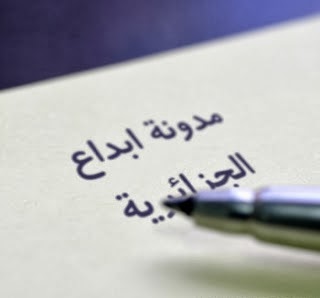 مدونة ابداع
الجزائرية